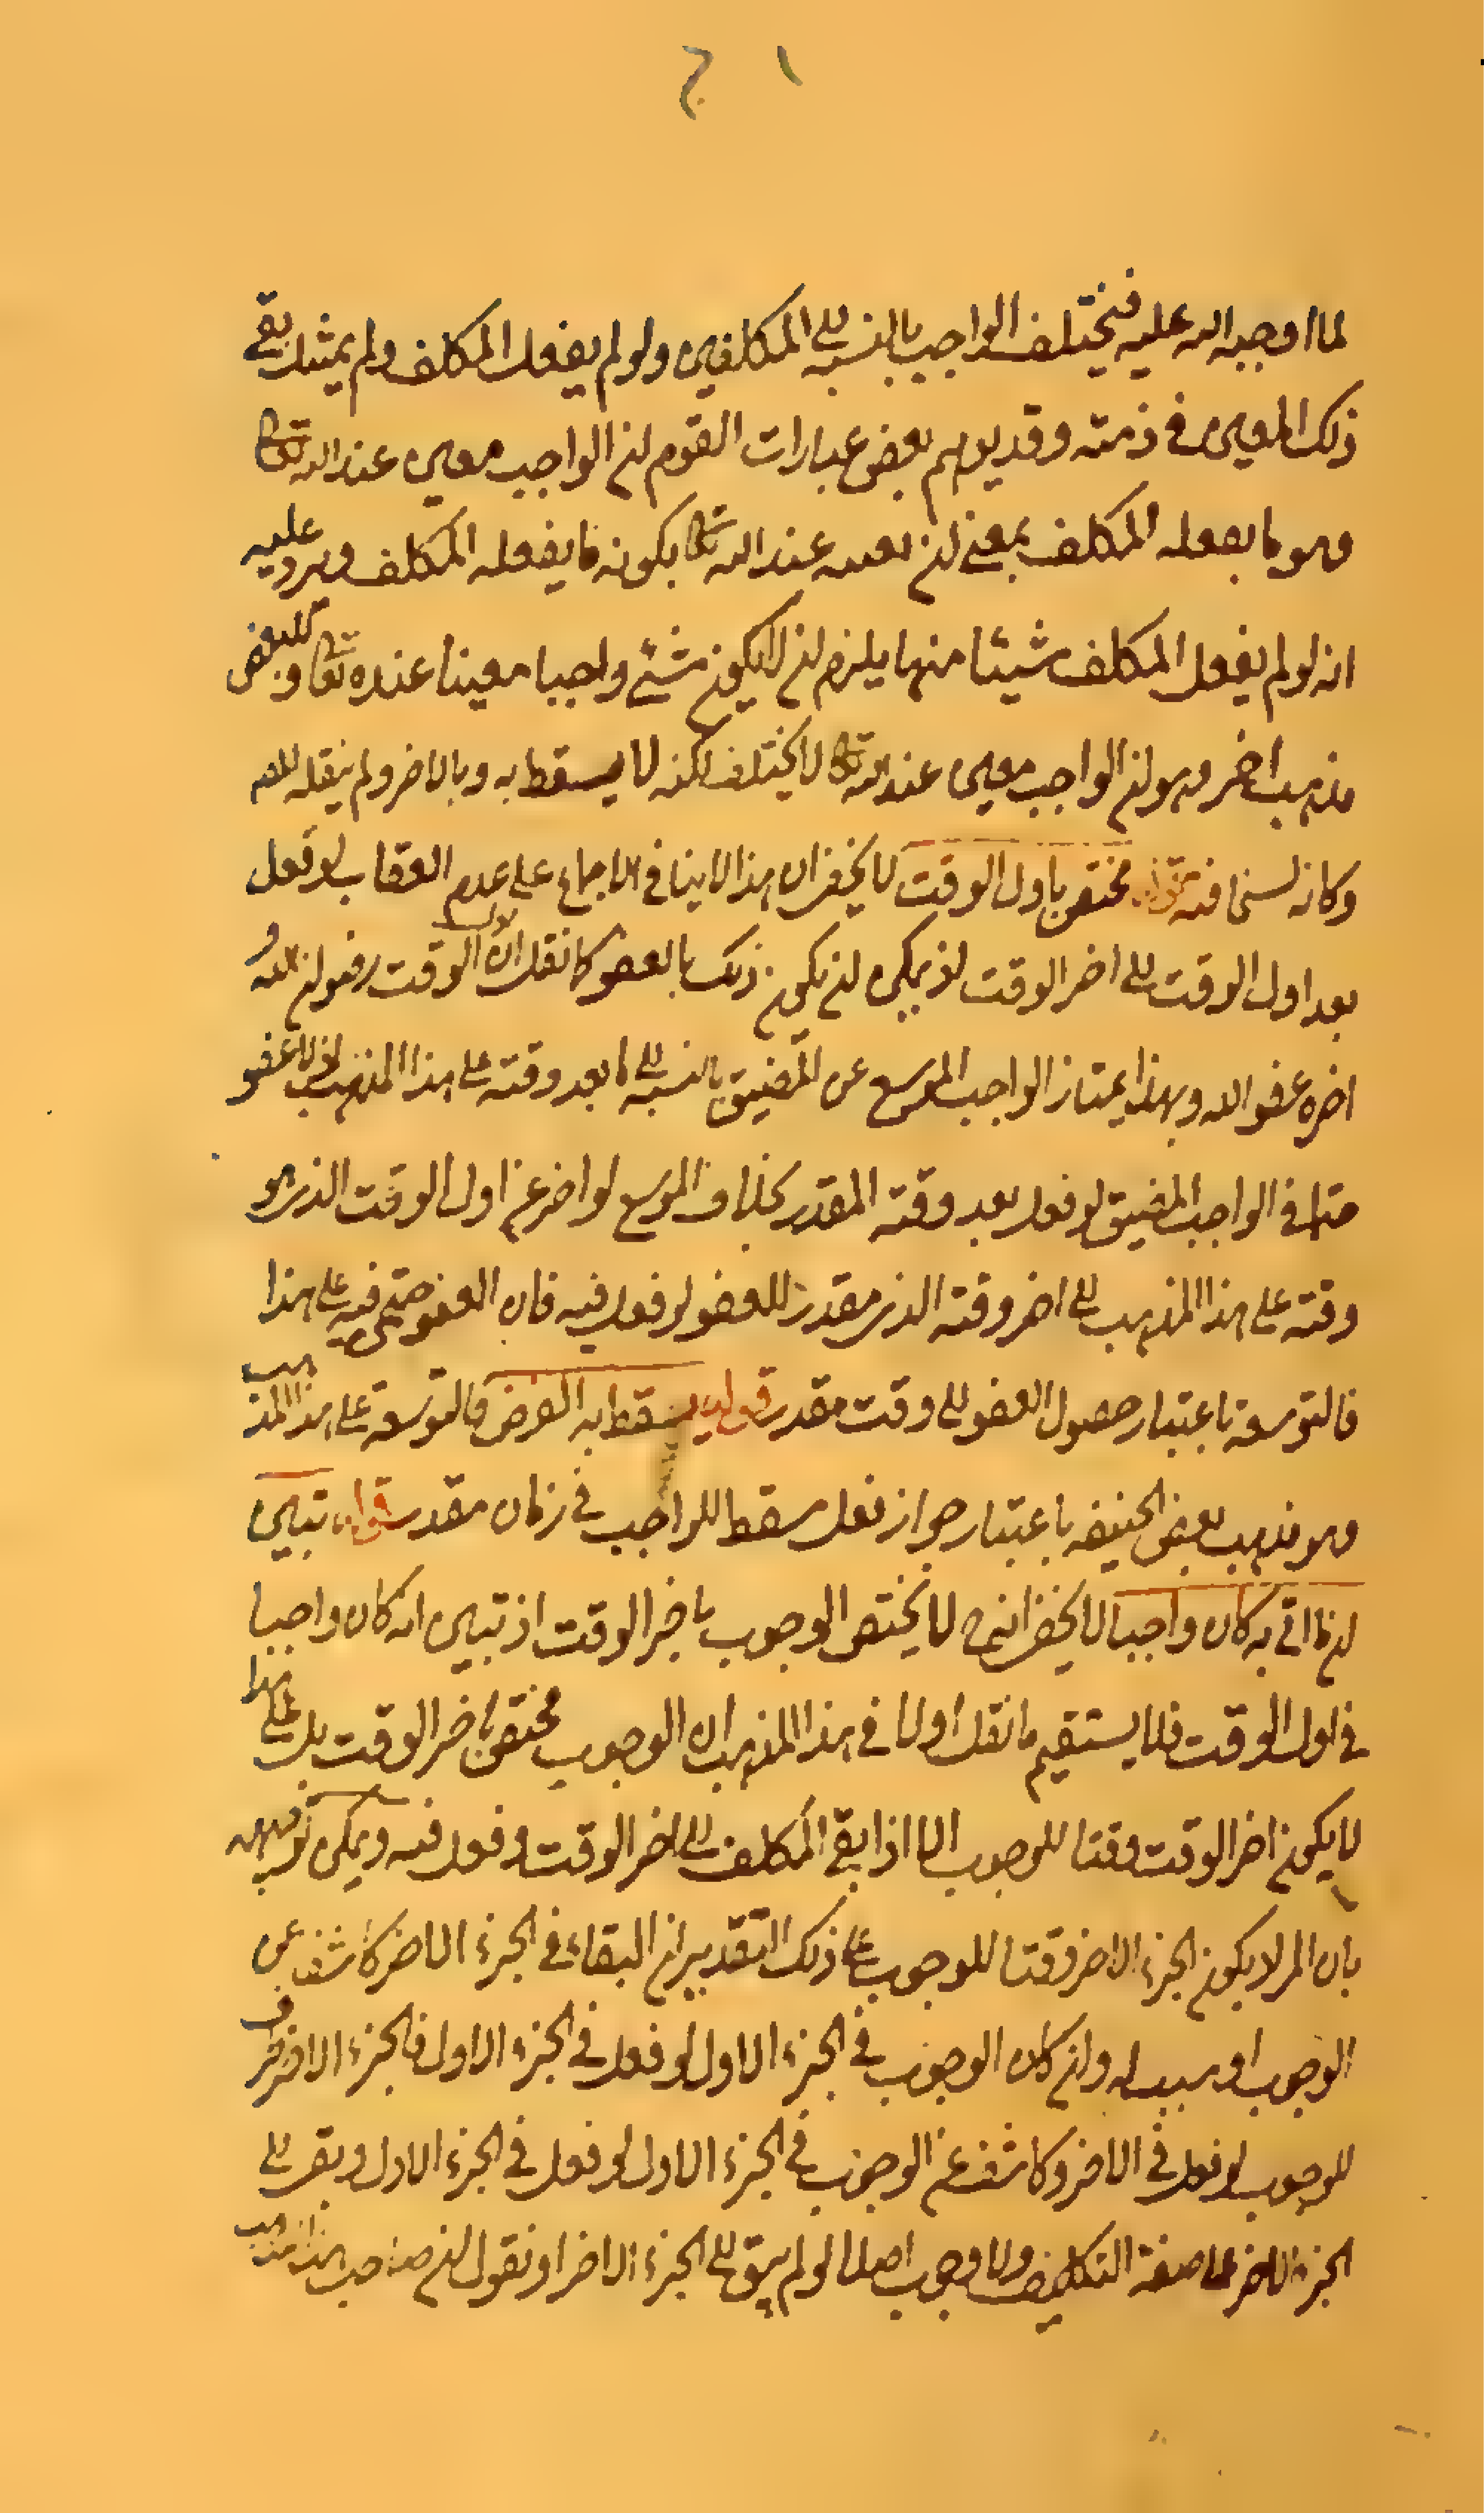 لما اوجبه الله عليه فيختلف الواجب بالنسبة الى المكلفين ولو لم يفعل المكلف ولم يمتثل بقي
ذلك المعين في ذمته وقد يوهم بعض عبارات القوم ان الواجب معين عند الله تعا
وهو ما يفعله المكلف بمعنى ان تعينه عند الله تعا بكونه ما يفعله المكلف ويرد عليه
انه لو لم يفعل المكلف شيئا منها يلزم ان لا يكون شئ واجبا معينا عنده تعا وللبعض
مذهب اخر وهو ان الواجب معين عند الله تعا لا يختلف لكنه لا يسقط به وبالاخر ولم ينقله المص
وكانه لسخافته قوله مختص باول الوقت لا يخفى ان هذا لا ينافي الاجماع على عدم العقاب لو فعل
بعد اول الوقت الى اخر الوقت اذ يمكن ان يكون ذلك بالعفو كما نقل ان اول الوقت رضوان الله و
اخره عفو الله وبهذا يمتاز الواجب الموسع عن المضيق بالنسبة الى ما بعد وقته على هذا المذهب اذ لا عفو
حتما في الواجب المضيق لو فعل بعد وقته المقدر بخلاف الموسع لو اخر عن اول الوقت الذي هو
وقته على هذا المذهب الى اخر وقته الذي مقدر للعفو لو فعل فيه فان العفو حتمي فيه على هذا
فالتوسعة باعتبار حصول العفو الى وقت مقدر قوله يسقط به الفرض فالتوسعة على هذا المذهب
وهو مذهب بعض الحنيفه باعتبار جواز فعل مسقط للواجب في زمان مقدر قوله تبين
ان ما اتى به كان واجبا لا يخفى انه ح لا يختص الوجوب باخر الوقت اذ تبين انه كان واجبا
في اول الوقت فلا يستقيم ما نقل اولا في هذا المذهب ان الوجوب مختص باخر الوقت بل على هذا
لا يكون اخر الوقت وقتا للوجوب الا اذا بقي المكلف الى اخر الوقت وفعل فيه ويمكن توجيهه
بان المراد بكون الجزء الاخر وقتا للوجوب على ذلك التقدير ان البقاء في الجزء الاخر كاشف عن
الوجوب او سبب له وان كان الوجوب في الجزء الاول لو فعل في الجزء الاول فالجزء الاخر ظرف
للوجوب لو فعل في الاخر وكاشف عن الوجوب في الجزء الاول لو فعل في الجزء الاول وبقي الى
الجزء الاخر على صفة التكليف ولا وجوب اصلا لو لم يبق الى الجزء الاخر او نقول ان صاحب هذا المذهب